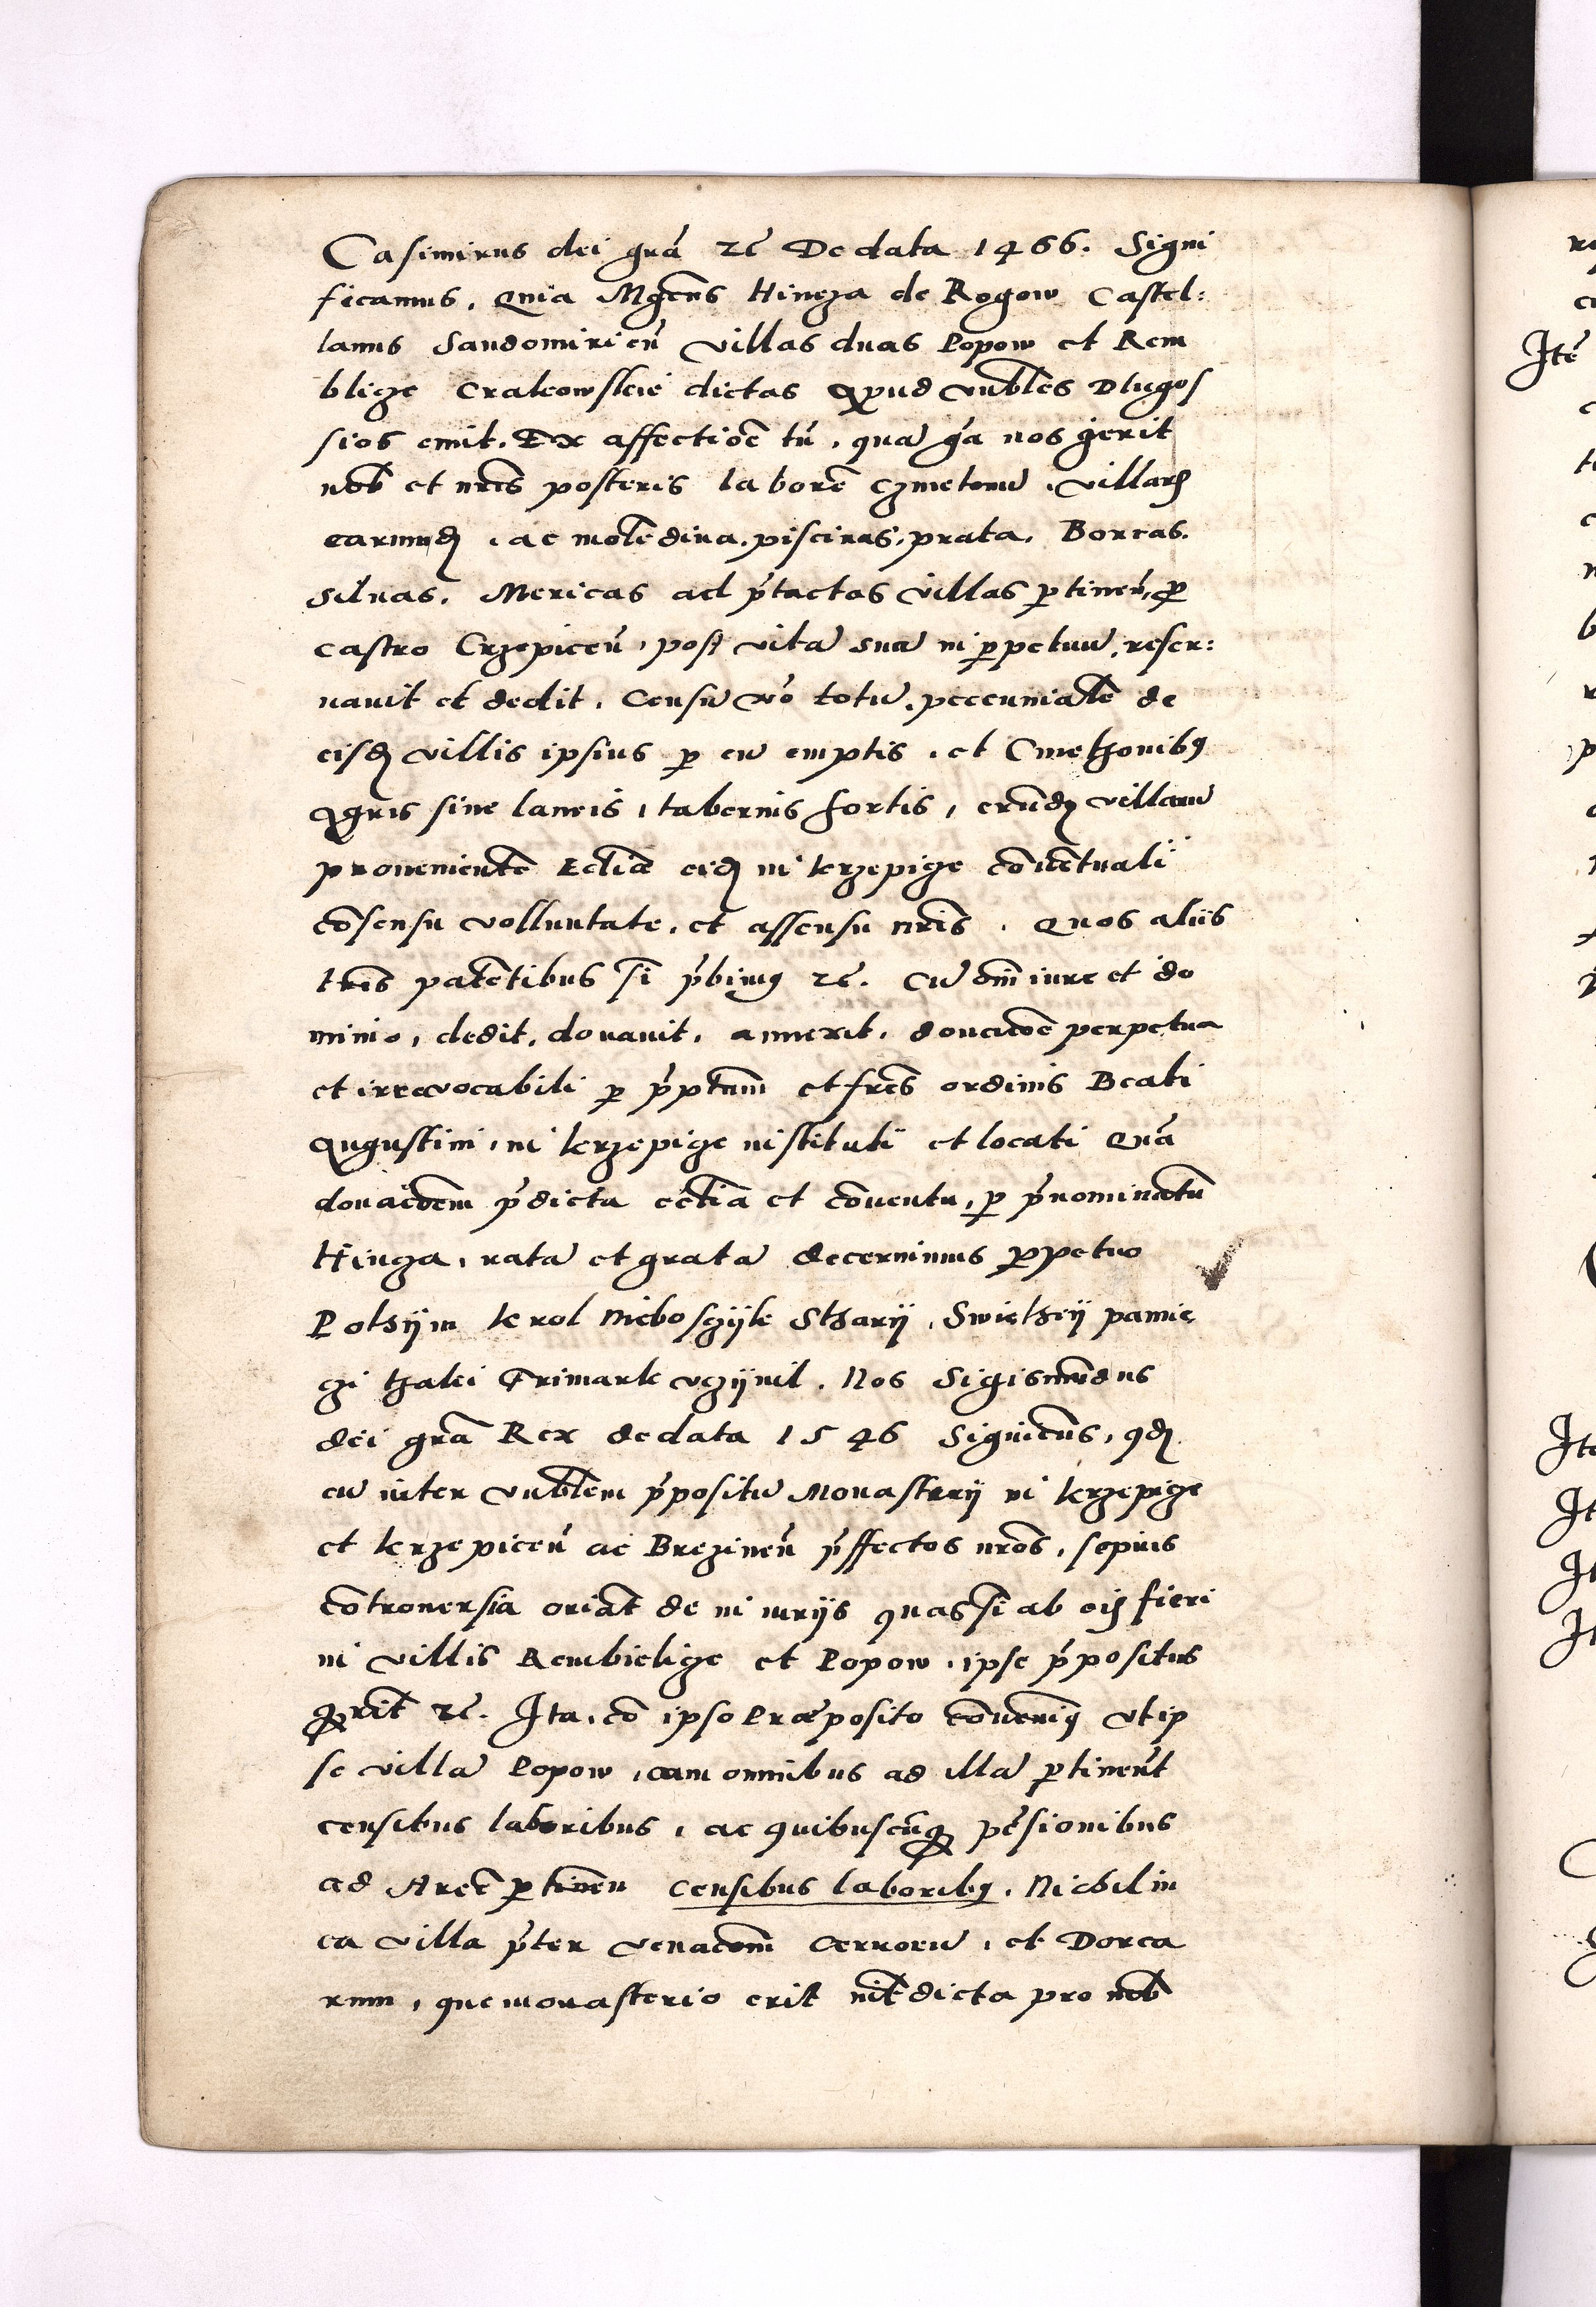 Casimirus dei grã zc̃ De data 1466. Signi
ficamus, Quia Mgcũs Hincza de Rogow Castel:
lanus Sandomirieñ villas duas Popow et Rem
blicze Crakowskie dictas Apud vnbl̃es Dlugos
sios emit. Ex affectiõe tñ, qua gͣa nos gerit
nob̃ et nr̃is posteris laborẽ czmetonũ, villarꝝ
earumdꝫ, ac molẽdina, piscinas, prata, Borras,
Siluas, Mericas ad p̃tactas villas ꝑtineñ, ꝓ
castro Crzepiceñ, post vitã suã in ꝑpetuũ, reser:
uauit et dedit, Censũ vͦo totũ, peccunialẽ de
eisdꝫ villis ipsius ꝑ eũ emptis, et Cmethonibꝰ
Agris siue laneis, tabernis fortis, earũdꝫ villarũ
prouenientẽ Ecl̃iæ eidꝫ in krzepicze cõuẽtuali
cõsensu volluntate, et assensu nr̃is, Quos aliis
lr̃is patẽtibus sͥi p̃bimꝰ zc̃. Cũ õm̃i iure et do
minio, dedit, donauit, annexit, donac̃ioẽ perpetua
et irreuocabili ꝑ p̃ptum̃ et fr̃es ordinis Beati
Augustini, in krzepicze instituti et locati Quã
donac̃ioẽm p̃dicta eccl̃ia et cõuentu, ꝑ p̃nominatũ
Hincza, ratã et gratã decernimus ꝑpetuo
Pothym krol niebosczyk Stharÿ, Swiethey pamie
czi thaki Frimark vczynil. Nos Sigismũdus
dei grã Rex de data 1546 Signicũs, qdꝫ
cũ inter vnbl̃em p̃positũ Monasterÿ in krzepicze
et krzepiceñ ac Brezineñ p̃ffectos nr̃os, sepius
cõtrouersia oriãt de iniurÿs quas sͥi ab eis fieri
in villis Rembielicze et Popow, ipse p̃positus
q̃rit zc̃. Ita, cõ ipso Præposito cõuenimꝰ vt ip
se villã Popow, cum omnibus ad illã ꝑtineñt
censibus laboribus, ac quibuscũqꝫ pẽsionibus
ad Arcẽ ꝑtineñ censibus laboribꝰ, Nichil in
ea villa p̃ter venac̃oñm cerrorũ, et Dorca
rum, que monasterio erit int̃dicta pro nob̃